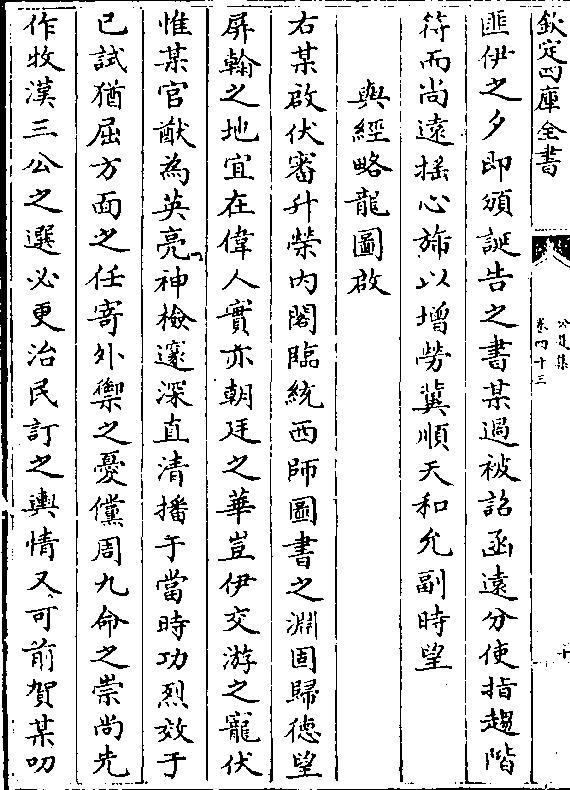 欽定四庫全書
公是集
卷四十三
十
匪伊之夕即頒誕告之書某過被詔函遠分使指趨階
符而尚遠揺心旆以增勞冀順天和允副時望
與經略龍圖啟
右某啟伏審升榮内閣臨統西師圖書之淵固歸徳望
屏翰之地宜在偉人實亦朝廷之華豈伊交游之寵伏
惟某官猷為英亮神檢邃深直清播于當時功烈效于
已試猶屈方面之任寄外禦之憂儻周九命之崇尚先
作牧漢三公之選必更治民訂之輿情又可前賀某叨